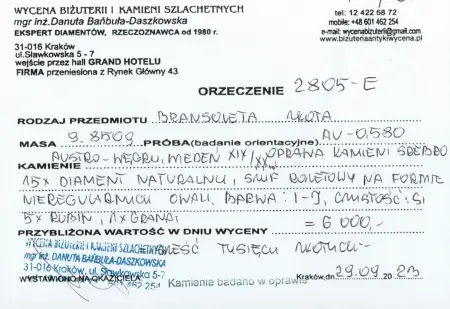 WYCENA BIŻUTERII I KAMIENI SZLACHETNYCH
mgr inż. Danuta Bańbuła-Daszkowska
EKSPERT DIAMENTÓW, RZECZOZNAWCA od 1980 r.
31-016 Kraków
ul.Sławkowska 5 - 7
wejście przez hall GRAND HOTELU
FIRMA przeniesiona z Rynek Główny 43
tel: 12 422 68 72
mobile: +48 601 462 254
e-mail: wycenabizuterii@gmail.com
www.bizuteriaantykiwycena.pl
ORZECZENIE 2805-E
RODZAJ PRZEDMIOTU BRANSOLETA ZŁOTA
MASA 9.850g PRÓBA(badanie orientacyjne) AU-0.580
AUSTRO-WĘGRY, WIEDEŃ XIX/XX, OPRAWA KAMIENI SREBRO
KAMIENIE 15x DIAMENT NATURALNY, SZLIF ROZETOWY NA FORMIE
NIEREGULARNYCH OWALI, BARWA: I-J, CZYSTOŚĆ: SI
5x RUBIN, 1x GRANAT
PRZYBLIŻONA WARTOŚĆ W DNIU WYCENY = 6 000,-
= SZEŚĆ TYSIĘCY ZŁOTYCH -
WYCENA BIŻUTERII I KAMIENI SZLACHETNYCH
mgr inż. DANUTA BAŃBUŁA-DASZKOWSKA
31-016 Kraków, ul. Sławkowska 5-7
601 462 254
WYSTAWIONO NA OKAZICIELA
Kamienie badano w oprawie
Kraków,dn 29.09.2023